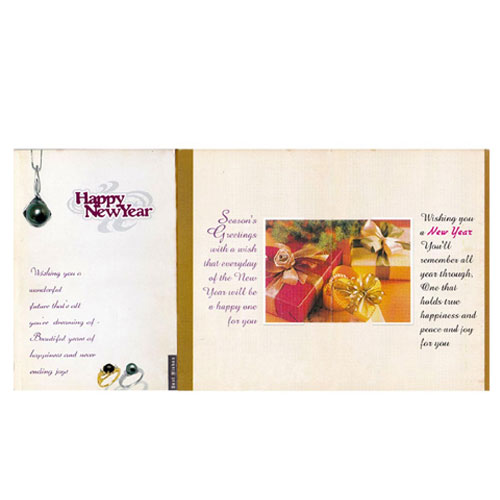 Happy
New Year
Wishing you a
wonderful
future that's all
you're dreaming of -
Beautiful years of
happiness and never
ending joys
Best Wishes
Season's
Greetings
with a wish
that everyday
of the New
Year will be
a happy one
for you
Wishing you
a New Year
You'll
remember all
year through,
One that
holds true
happiness and
peace and joy
for you